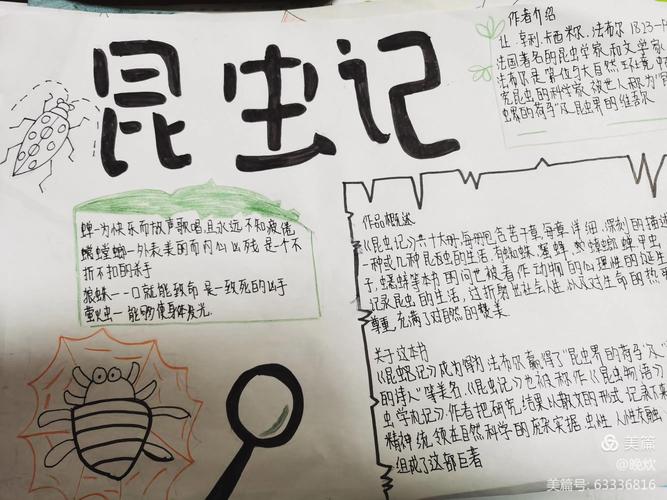 昆虫记
作者介绍
让·亨利·卡西米尔·法布尔 1823-1
法国著名的昆虫学家和文学家
法布尔是第一位在大自然环境中
究昆虫的科学家,被世人称为"
螺的荷马"及昆虫界的维吉尔
蝉一为快乐而放声歌唱,且永远不知疲倦
螳螂一外表美的而内心凶残 是个不
折不扣的杀手
狼蛛一一口就能致命 是一致死的凶手
萤火虫一能够使身体发光.
作品概述
《昆虫记》共十大册,每册包含若干章,每章详细、深刻的描述
一种或几种昆虫的生活,有蜘蛛、蜜蜂、
子,蟋蟀等本书的问世被看作动物的心理性的诞生
记录昆虫的生活,过折射出社会人生 对生命的热
尊重,充满了对自然的赞美
关于这本书
《昆虫记》成为得为 法布尔赢得了"昆虫界的荷马"及"
的诗人"等美名《昆虫记》也被称作《昆虫物语》
虫学札记》作者把研究结果以散文的形式 记录下来
精神统领在自然科学的 虫性、人性交融
组成了这部巨著
美篇
@晚炊
美篇号:63336816